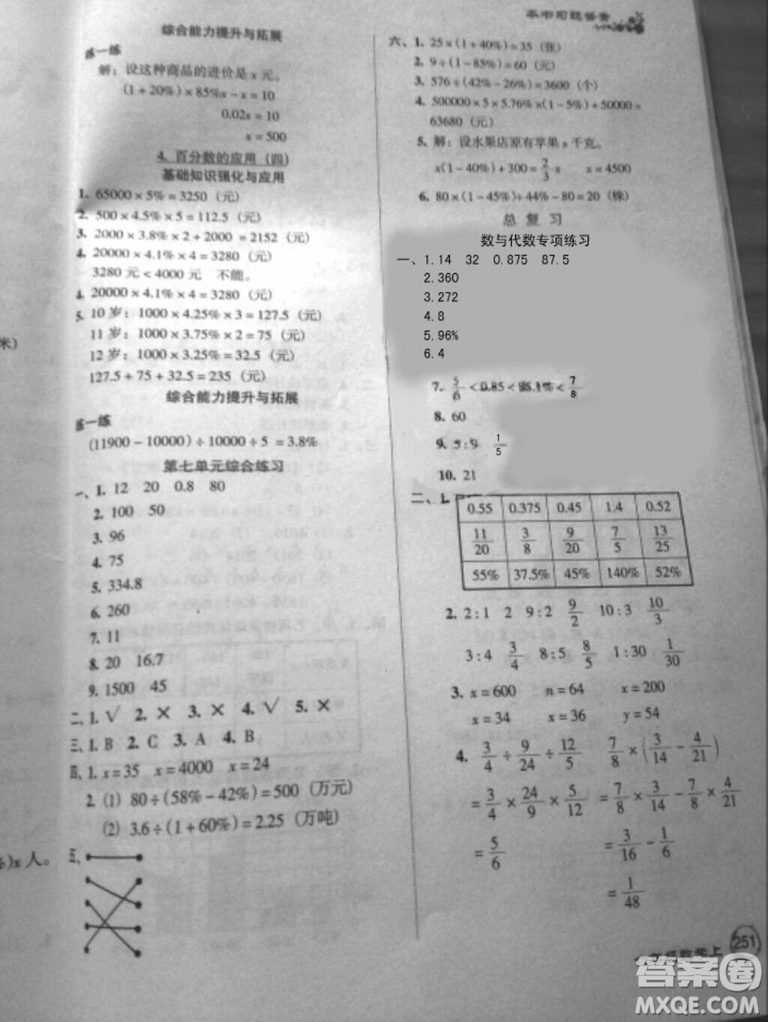 综合能力提升与拓展
练一练
解：设这种商品的进价是 x 元。
(1+20%)×85%x-x=10
0.02x=10
x=500
4. 百分数的应用（四）
基础知识强化与应用
1. 65000×5%=3250（元）
2. 500×4.5%×5=112.5（元）
3. 2000×3.8%×2+2000=2152（元）
4. 20000×4.1%×4=3280（元）
3280 元<4000 元 不能。
4. 20000×4.1%×4=3280（元）
5. 10 岁：1000×4.25%×3=127.5（元）
11 岁：1000×3.75%×2=75（元）
12 岁：1000×3.25%=32.5（元）
127.5+75+32.5=235（元）
综合能力提升与拓展
练一练
(11900-10000)÷10000÷5=3.8%
第七单元综合练习
一、1. 12 20 0.8 80
2. 100 50
3. 96
4. 75
5. 334.8
6. 260
7. 11
8. 20 16.7
9. 1500 45
二、1. √ 2. × 3. × 4. √ 5. ×
三、1. B 2. C 3. A 4. B
四、1. x=35 x=4000 x=24
2. (1) 80÷(58%-42%)=500（万元）
(2) 3.6÷(1+60%)=2.25（万吨）
五、
米）
%)x 人。
六、1. 25×(1+40%)=35（张）
2. 9÷(1-85%)=60（元）
3. 576÷(42%-26%)=3600（个）
4. 500000×5×5.76%×(1-5%)+50000=
63680（元）
5. 解：设水果店原有苹果 x 千克。
x(1-40%)+300=2/3 x x=4500
6. 80×(1-45%)÷44%-80=20（株）
总 复 习
数与代数专项练习
一、1.14 32 0.875 87.5
2.360
3.272
4.8
5.96%
6.4
7. 5/6<0.85<85.1%<7/8
8. 60
9. 5:9 1/5
10. 21
二、1.
0.55 0.375 0.45 1.4 0.52
11/20 3/8 9/20 7/5 13/25
55% 37.5% 45% 140% 52%
2. 2:1 2 9:2 9/2 10:3 10/3
3:4 3/4 8:5 8/5 1:30 1/30
3. x=600 n=64 x=200
x=34 x=36 y=54
4. 3/4÷9/24÷12/5 7/8×(3/14-4/21)
=3/4×24/9×5/12 =7/8×3/14-7/8×4/21
=5/6 =3/16-1/6
=1/48
年级数学上 251
答案圈
MXQE.COM